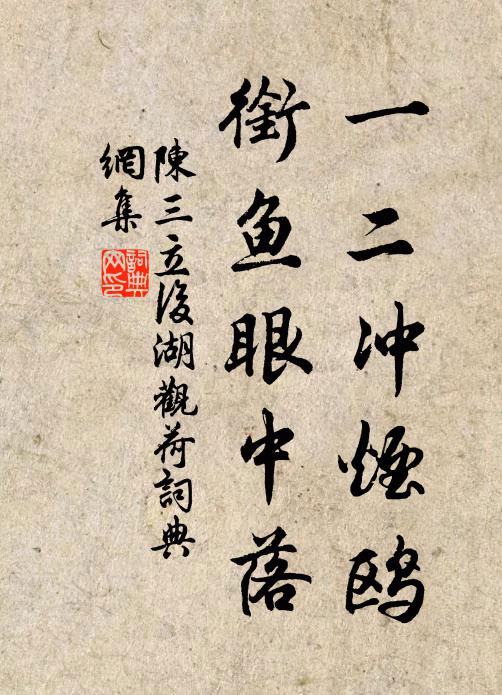 一二冲煙鸥
銜鱼眼中落
陳三立後湖觀荷詞典
網集
詞典
网印